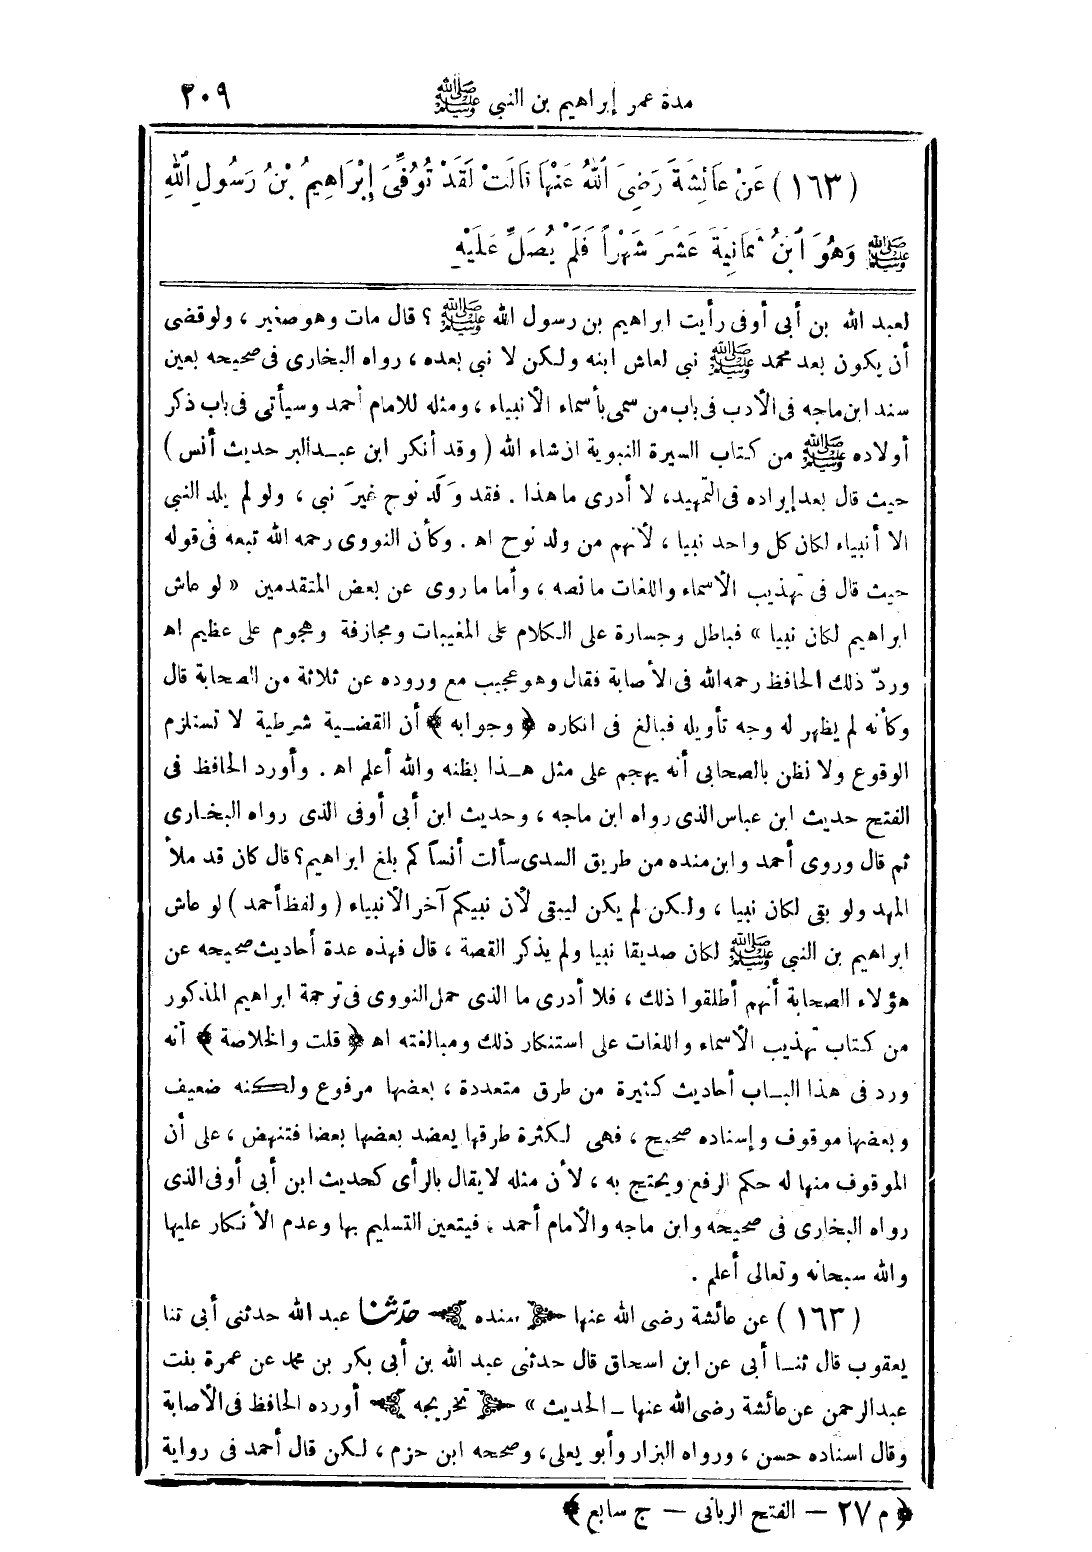 مدة عمر إبراهيم بن النبي ﷺ ٢٠٩
(١٦٣) عَنْ عَائِشَةَ رَضِىَ اللهُ عَنْهَا قَالَتْ لَقَدْ تُوُفِّىَ إِبْرَاهِيمُ بْنُ رَسُولِ اللهِ
ﷺ وَهُوَ ابْنُ ثَمَانِيَةَ عَشَرَ شَهْراً فَلَمْ يُصَلِّ عَلَيْهِ
لعبد الله بن أبى أوفى رأيت ابراهيم بن رسول الله ﷺ ؟ قال مات وهو صغير ، ولو قضى
أن يكون بعد محمد ﷺ نبي لعاش ابنه ولكن لا نبي بعده ، رواه البخارى فى صحيحه بعين
سند ابن ماجه فى الأدب فى باب من سمى بأسماء الأنبياء ، ومثله للامام أحمد وسيأتى فى باب ذكر
أولاده ﷺ من كتاب السيرة النبوية ان شاء الله ( وقد أنكر ابن عبدالبر حديث أنس )
حيث قال بعد إيراده فى التمهيد، لا أدرى ما هذا . فقد وَلَد نوح غيرَ نبي ، ولو لم يلد النبي
الا أنبياء لكان كل واحد نبيا ، لأنهم من ولد نوح اه . وكأن النووى رحمه الله تبعه فى قوله
حيث قال فى تهذيب الأسماء واللغات ما نصه ، وأما ما روى عن بعض المتقدمين « لو عاش
ابراهيم لكان نبيا » فباطل وجسارة على الكلام على المغيبات ومجازفة وهجوم على عظيم اه
وردّ ذلك الحافظ رحمه الله فى الأصابة فقال وهو عجيب مع وروده عن ثلاثة من الصحابة قال
وكأنه لم يظهر له وجه تأويله فبالغ فى انكاره ﴿ وجوابه ﴾ أن القضية شرطية لا تستلزم
الوقوع ولا نظن بالصحابى أنه يهجم على مثل هذا بظنه والله أعلم اه . وأورد الحافظ فى
الفتح حديث ابن عباس الذى رواه ابن ماجه ، وحديث ابن أبى أوفى الذى رواه البخارى
ثم قال وروى أحمد وابن منده من طريق السدى سألت أنساً كم بلغ ابراهيم؟ قال كان قد ملأ
المهد ولو بقى لكان نبيا ، ولكن لم يكن ليبقى لأن نبيكم آخر الأنبياء ( ولفظ أحمد ) لو عاش
ابراهيم بن النبي ﷺ لكان صديقا نبيا ولم يذكر القصة ، قال فهذه عدة أحاديث صحيحه عن
هؤلاء الصحابة أنهم أطلقوا ذلك ، فلا أدرى ما الذى حمل النووى فى ترجمة ابراهيم المذكور
من كتاب تهذيب الأسماء واللغات على استنكار ذلك ومبالغته اه ﴿ قلت والخلاصة ﴾ أنه
ورد فى هذا الباب أحاديث كثيرة من طرق متعددة ، بعضها مرفوع ولكنه ضعيف
وبعضها موقوف وإسناده صحيح ، فهى لكثرة طرقها يعضد بعضها بعضا فتنهض ، على أن
الموقوف منها له حكم الرفع ويحتج به ، لأن مثله لا يقال بالرأى كحديث ابن أبى أوفى الذى
رواه البخارى فى صحيحه وابن ماجه والامام أحمد ، فيتعين التسليم بها وعدم الأنكار عليها
والله سبحانه وتعالى أعلم .
(١٦٣) عن عائشة رضى الله عنها سنده حدثنا عبد الله حدثنى أبى ثنا
يعقوب قال ثنا أبى عن ابن اسحاق قال حدثنى عبد الله بن أبى بكر بن محمد عن عمرة بنت
عبدالرحمن عن عائشة رضى الله عنها ـ الحديث » تخريجه أورده الحافظ فى الأصابة
وقال اسناده حسن ، ورواه البزار وأبو يعلى، وصححه ابن حزم ، لكن قال أحمد فى رواية
﴿ م ٢٧ — الفتح الربانى — ج سابع ﴾